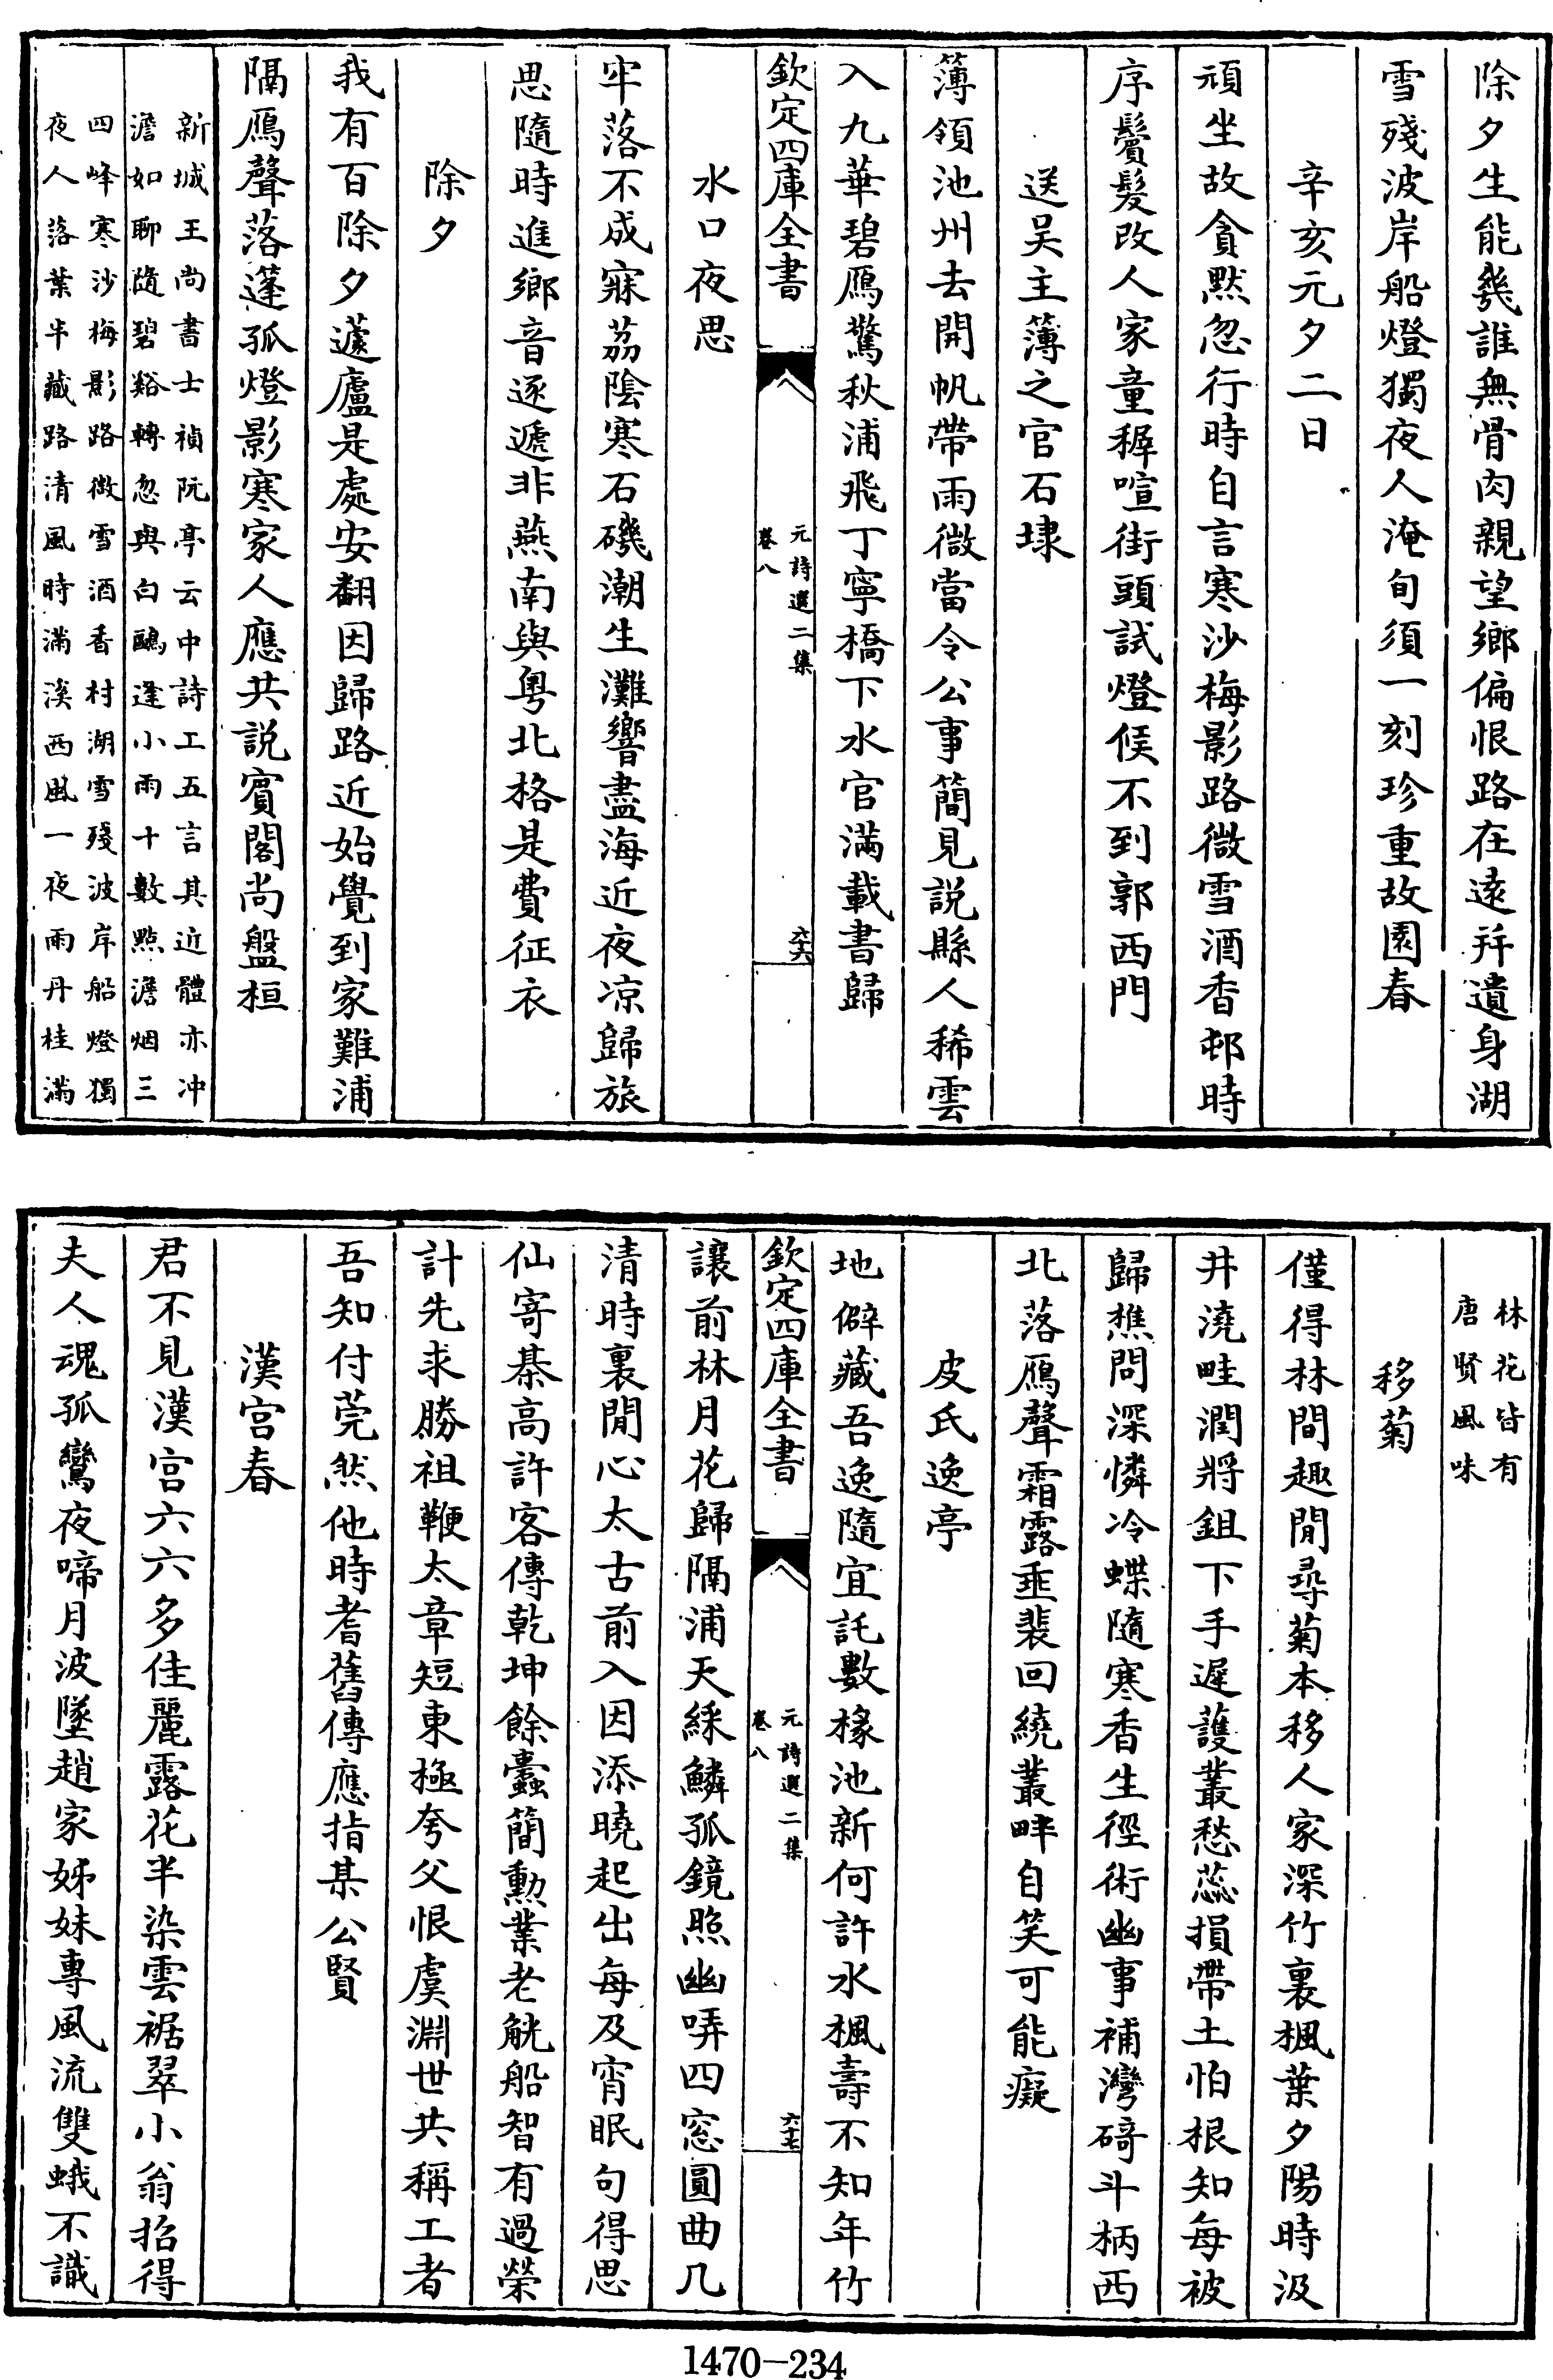 除夕生能幾誰無骨肉親望鄉偏恨路在遠并遺身湖
雪殘波岸船燈獨夜人淹旬須一刻珍重故園春
辛亥元夕二日
頑坐故貪默忽行時自言寒沙梅影路微雪酒香邨時
序鬢髮改人家童穉喧街頭試燈候不到郭西門
送吴主簿之官石埭
薄領池州去開帆帶雨微當令公事簡見説縣人稀雲
入九華碧鴈驚秋浦飛丁寧橋下水官滿載書歸
欽定四庫全書
元詩選二集
卷八
六六
水口夜思
牢落不成寐茘陰寒石磯潮生灘響盡海近夜凉歸旅
思隨時進鄉音逐遞非燕南與粤北格是費征衣
除夕
我有百除夕蘧廬是處安翻因歸路近始覺到家難浦
隔鴈聲落蓬孤燈影寒家人應共説賓閣尚盤桓
新城王尚書士禎阮亭云中詩工五言其近體亦冲
澹如聊隨碧谿轉忽與白鷗逢小雨十數點澹烟三
四峰寒沙梅影路微雪酒香村湖雪殘波岸船燈獨
夜人落葉半藏路清風時滿溪西風一夜雨丹桂滿
林花皆有
唐賢風味
移菊
僅得林間趣閒尋菊本移人家深竹裏楓葉夕陽時汲
井澆畦潤將鉏下手遲護叢愁蕊損帶土怕根知每被
歸樵問深憐冷蝶隨寒香生徑術幽事補灣碕斗柄西
北落鴈聲霜露垂裴回繞叢畔自笑可能癡
皮氏逸亭
地僻藏吾逸隨宜託數椽池新何許水楓壽不知年竹
讓前林月花歸隔浦天綵鱗孤鏡照幽哢四窓圓曲几
欽定四庫全書
元詩選二集
卷八
六七
清時裏閒心太古前入因添曉起出每及宵眠句得思
仙寄棊高許客傳乾坤餘蠹簡勲業老觥船智有過榮
計先求勝祖鞭太章短東極夸父恨虞淵世共稱工者
吾知付莞然他時耆舊傳應指某公賢
漢宫春
君不見漢宫六六多佳麗露花半染雲裾翠小翁招得
夫人魂孤鸞夜啼月波墜趙家姊妹專風流雙蛾不識
1470-234